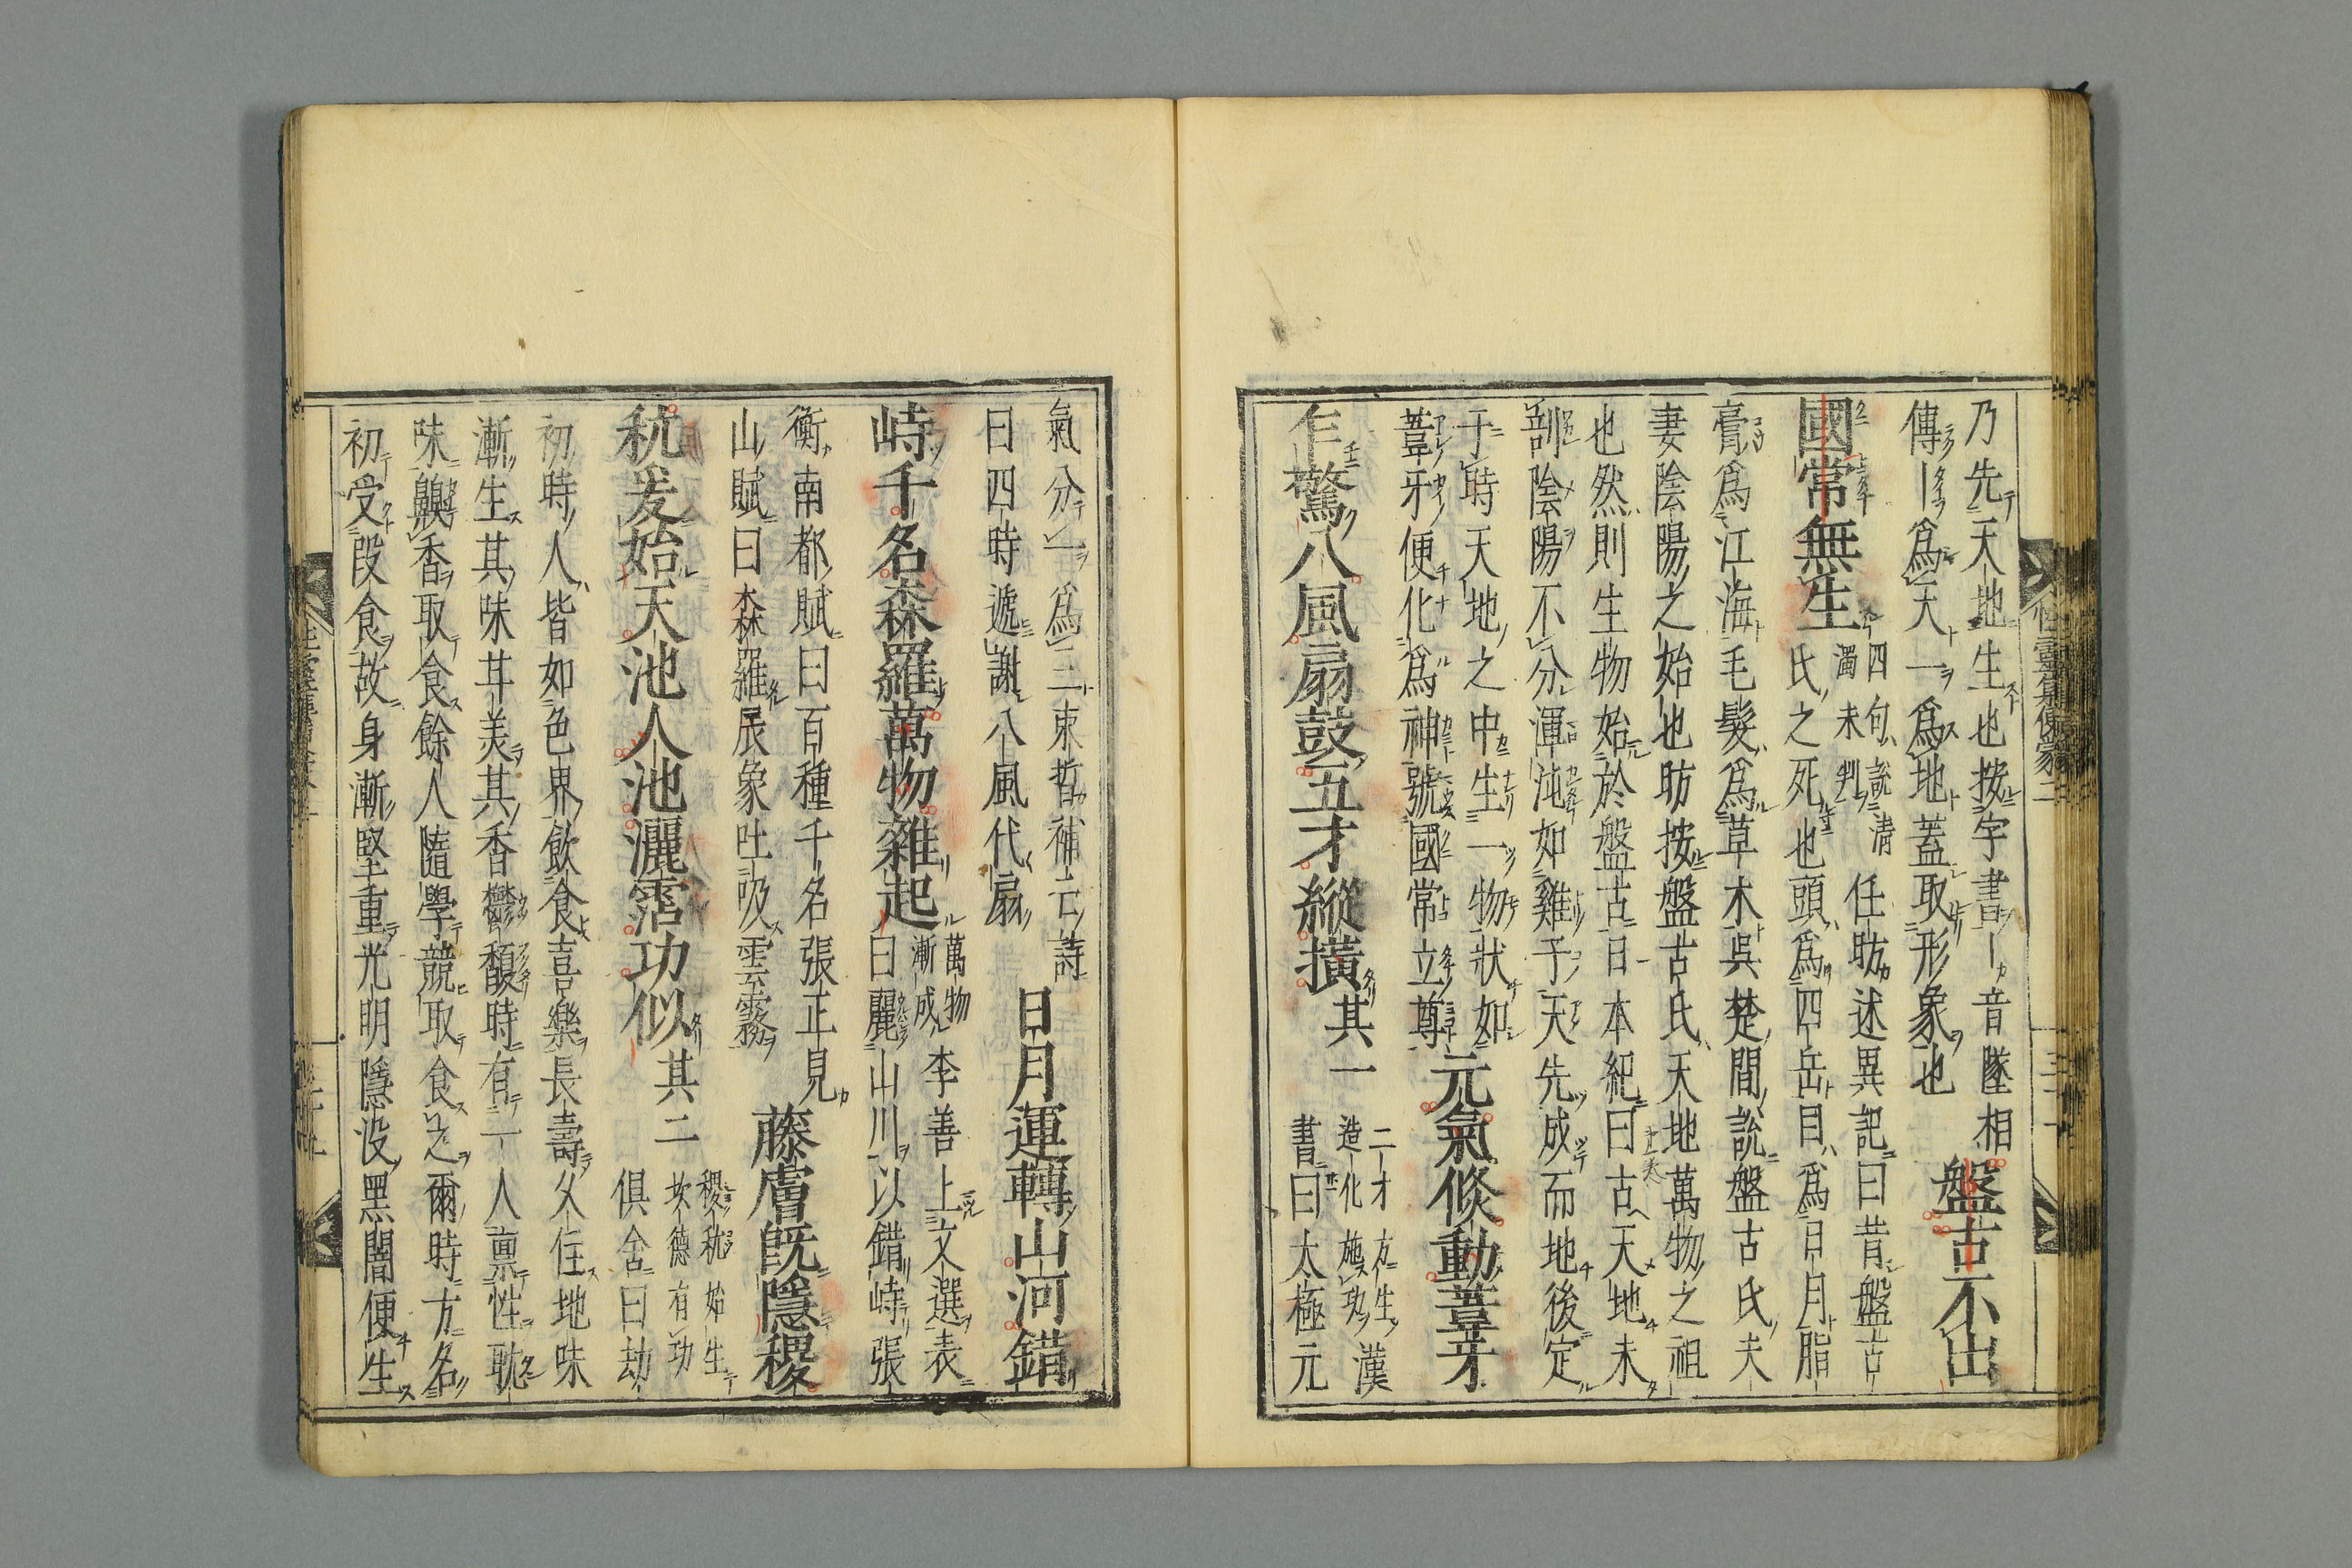 乃先天地生也按字書ーカ音墜相
傳ー爲天一爲地蓋取形象也　盤古不出
國常無生四句説清濁未判　任昉述異記曰昔盤古
氏之死也頭爲四岳目爲日月脂
膏爲江海毛髮爲草木吳楚間説盤古氏夫
妻陰陽之始也昉按盤古氏天地萬物之祖
也然則生物始於盤古日本紀曰古天地未
剖陰陽不分渾沌如雞子天先成而地後定
于時天地之中生一物狀如
葦牙便化爲神號國常立尊　元氣倏動葦牙
乍驚八風扇鼓五才縱擴其一　二才方生造化施功　漢
書曰太極元
氣分一爲三束晳補亡詩
曰四時遞謝八風代扇　日月運轉山河錯
峙千名森羅萬物雜起萬物漸成　李善上文選表
曰麗山川以錯峙張
衡南都賦曰百種千名張正見
山賦曰森羅辰象吐吸雲霧　藤膚旣隱稷
秔爰始天池人池灑霑功似其二　稷秔始生坎德有功
俱舍曰劫
初時人皆如色界飲食喜樂長壽久住地味
漸生其味甘美其香欝馥時有一人禀性耽
味齅香取食餘人隨學競取食之爾時方名
初受段食故身漸堅重光明隱没黑闇便生